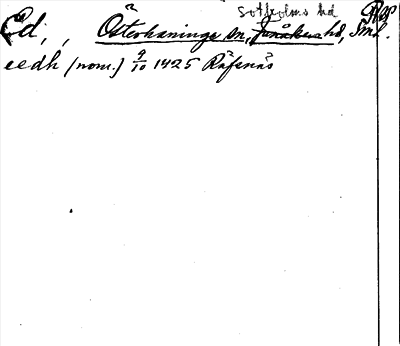 Sotholms hd Rep
Ed, , Österhaninge sn, hd, Sml.
eedh (nom.) 9/10 1425 Räfsnäs